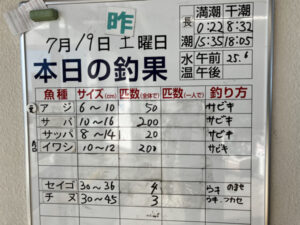 昨
7月19日 土曜日
長潮
満潮 干潮
0:22 8:32
15:35 18:05
本日の釣果
水温 午前 25.6
午後
魚種 サイズ(cm) 匹数(全体で) 匹数(一人で) 釣り方
アジ 6~10 50 サビキ
サバ 10~16 200 サビキ
サッパ 8~14 20 サビキ
イワシ 10~12 200 サビキ
セイゴ 30~36 4 ウキ のませ
チヌ 30~45 3 ウキ フカセ